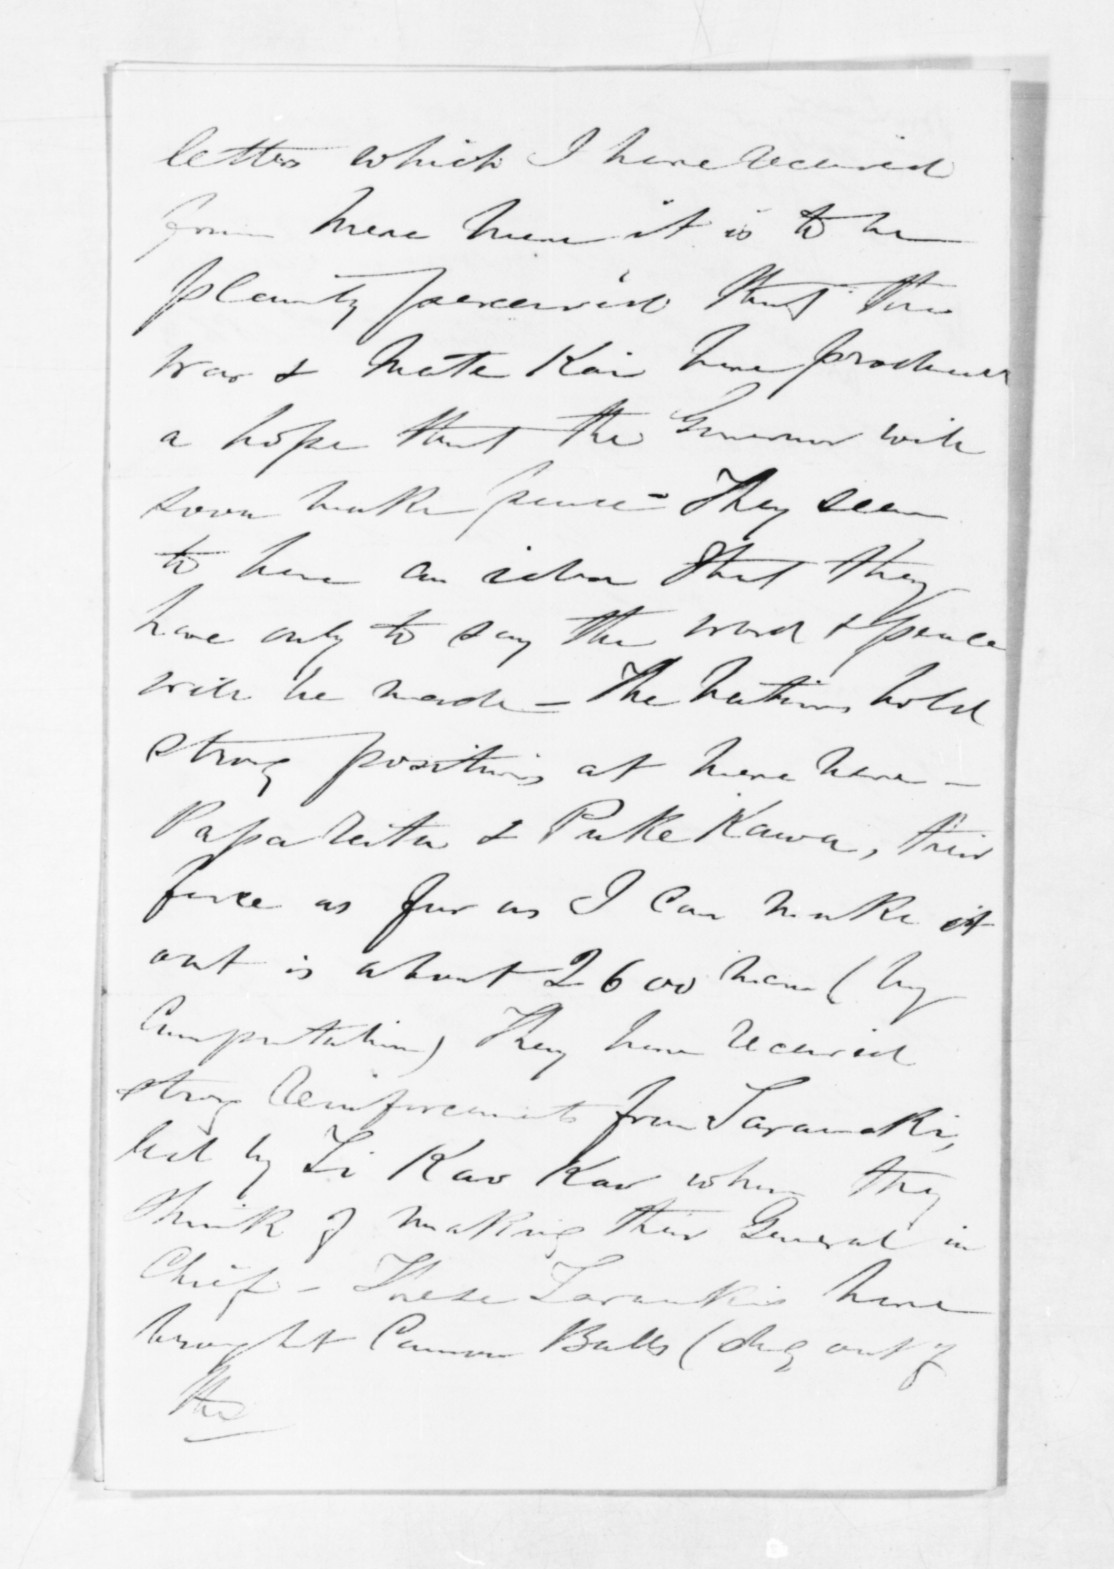 letters which I have received
from Mere Mere it is to be
plainly perceived that the
war & Mate Kai have produced
a hope that the Governor will
soon make peace - They seem
to have an idea that they
have only to say the word & peace
will be made - The Natives hold
strong positions at Mere Mere -
Papa Rata & Puke Kawa, their
force as far as I can make it
out is about 2600 men (by
Computation) They have received
strong reinforcements from Taranaki,
led by Ti Kao Kao whom they
think of making their General in
Chief - These Taranakis have
brought Cannon Balls (dug out of
the